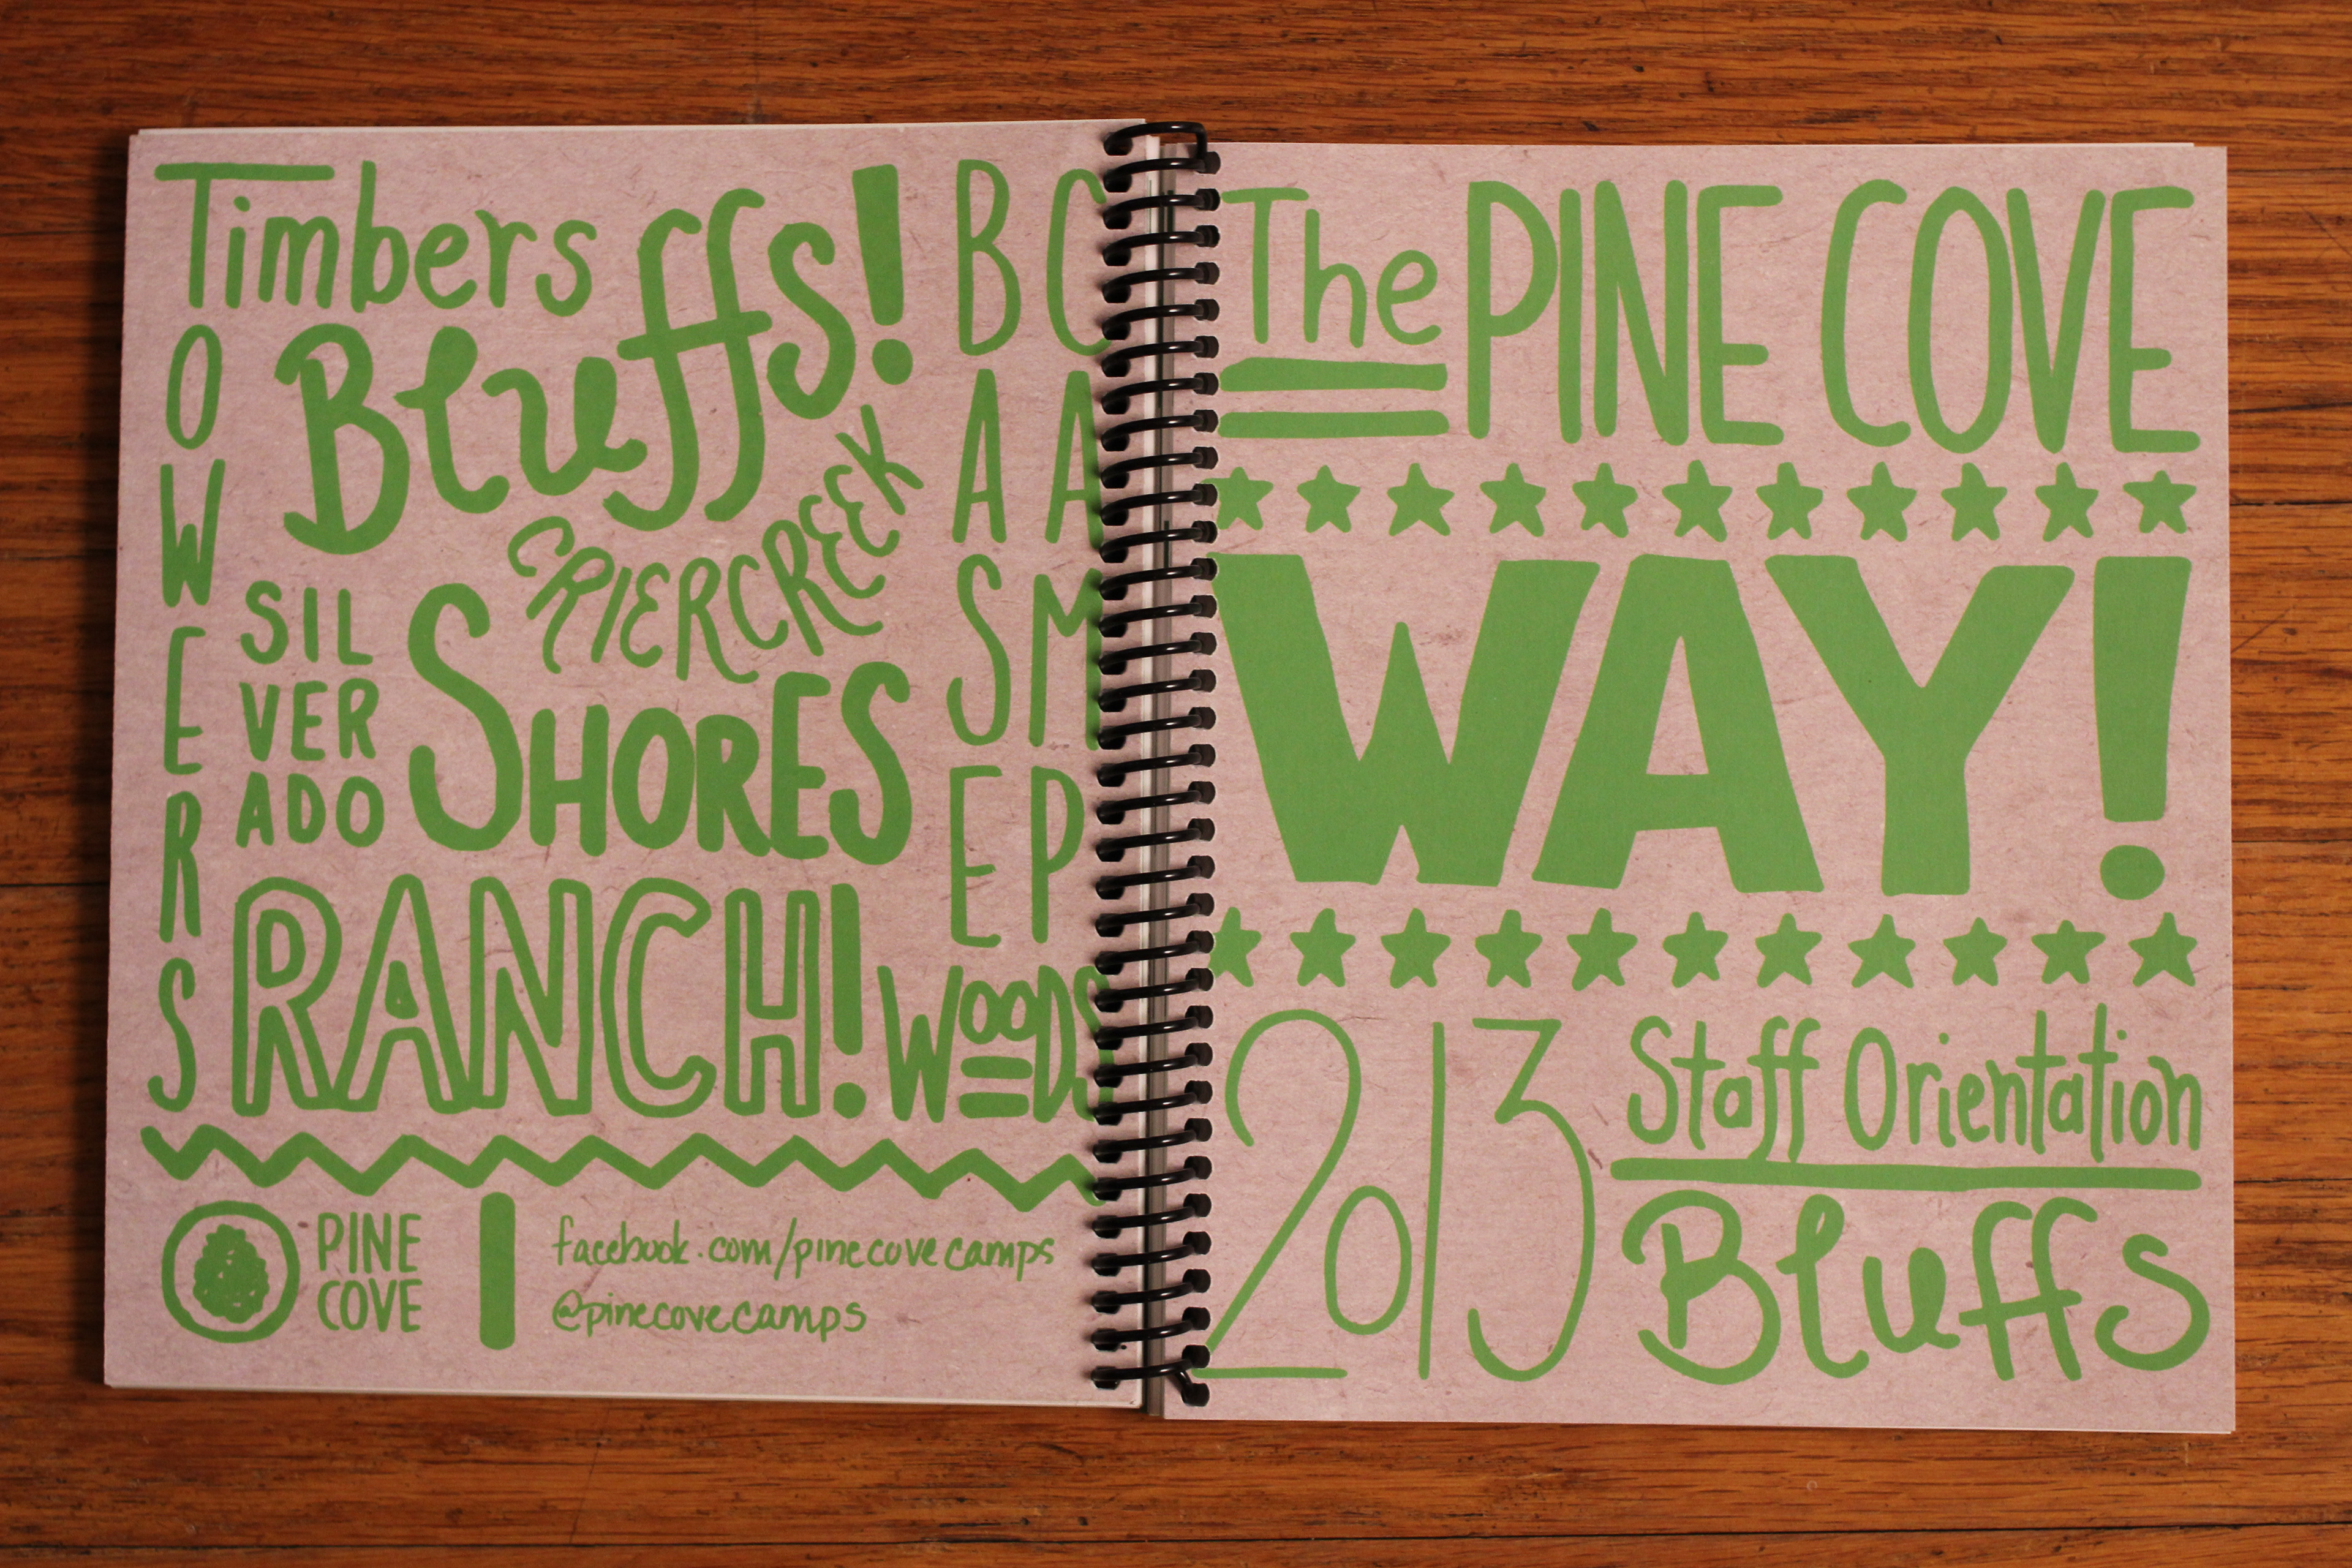 Timbers
TOWERS
Bluffs!
BASE
CAMP
CRIERCREEK
SIL
VER
ADO
SHORES
RANCH!
WOODS
PINE
COVE
facebook.com/pinecovecamps
@pinecovecamps
The PINE COVE
WAY!
2013
Staff Orientation
Bluffs